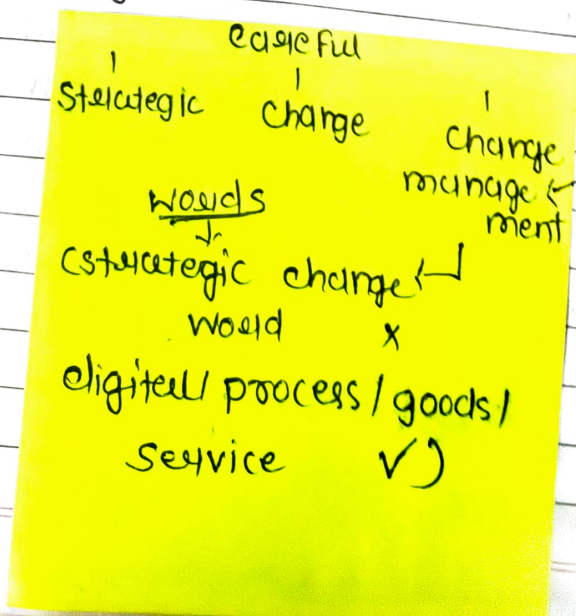 careful
strategic change change
manage
ment
words
(strategic change
word x
digital/ process/goods/
service ✓)